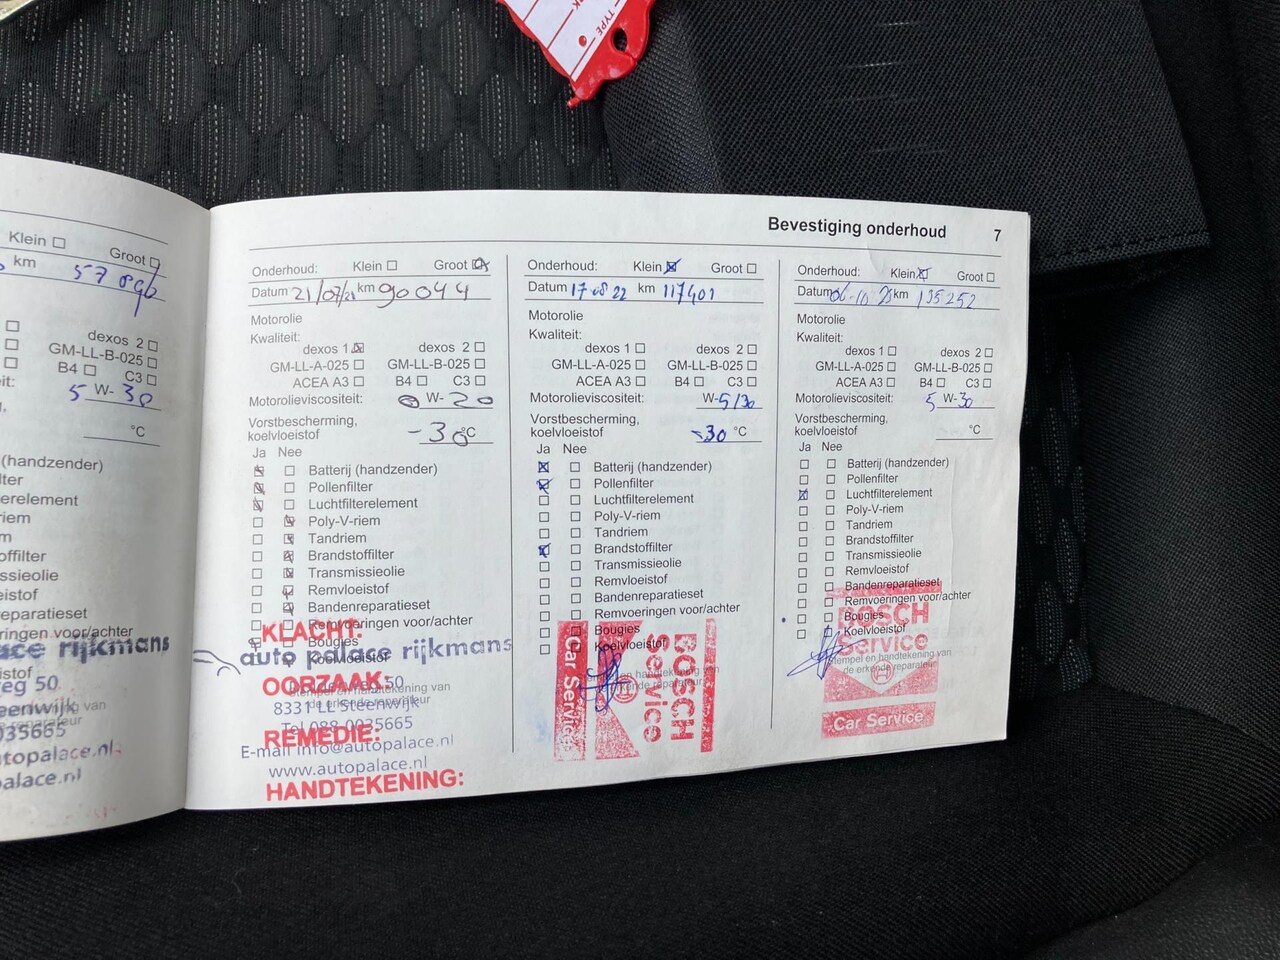 TYPE
Klein
Groot
km 57896
dexos 2
GM-LL-B-025
B4 C3
5 W- 30
°C
(handzender)
offilter
ssieolie
reparatieset
ringen voor/achter
ace rijkmans
eg 50
eenwijk
035665
topalace.nl
palace.nl
Bevestiging onderhoud 7
Onderhoud: Klein Groot
Datum 21/07/21 km 90044
Motorolie
Kwaliteit:
dexos 1 dexos 2
GM-LL-A-025 GM-LL-B-025
ACEA A3 B4 C3
Motorolieviscositeit: 0 W- 20
Vorstbescherming,
koelvloeistof -30 °C
Ja Nee
Batterij (handzender)
Pollenfilter
Luchtfilterelement
Poly-V-riem
Tandriem
Brandstoffilter
Transmissieolie
Remvloeistof
Bandenreparatieset
Remvoeringen voor/achter
Bougies
Koelvloeistof
KLACHT:
auto palace rijkmans
OORZAAK:
50
8331 LL Steenwijk
Tel 088-0035665
REMEDIE:
E-mail info@autopalace.nl
www.autopalace.nl
HANDTEKENING:
Onderhoud: Klein Groot
Datum 17 08 22 km 117401
Motorolie
Kwaliteit:
dexos 1 dexos 2
GM-LL-A-025 GM-LL-B-025
ACEA A3 B4 C3
Motorolieviscositeit: W- 5/30
Vorstbescherming,
koelvloeistof -30 °C
Ja Nee
Batterij (handzender)
Pollenfilter
Luchtfilterelement
Poly-V-riem
Tandriem
Brandstoffilter
Transmissieolie
Remvloeistof
Bandenreparatieset
Remvoeringen voor/achter
Bougies
Koelvloeistof
BOSCH
Service
Car Service
Onderhoud: Klein Groot
Datum 06-10 km 135252
Motorolie
Kwaliteit:
dexos 1 dexos 2
GM-LL-A-025 GM-LL-B-025
ACEA A3 B4 C3
Motorolieviscositeit: 5 W- 30
Vorstbescherming,
koelvloeistof °C
Ja Nee
Batterij (handzender)
Pollenfilter
Luchtfilterelement
Poly-V-riem
Tandriem
Brandstoffilter
Transmissieolie
Remvloeistof
Bandenreparatieset
Remvoeringen voor/achter
Bougies
Koelvloeistof
BOSCH
Service
Stempel en handtekening van
de erkende reparateur
Car Service